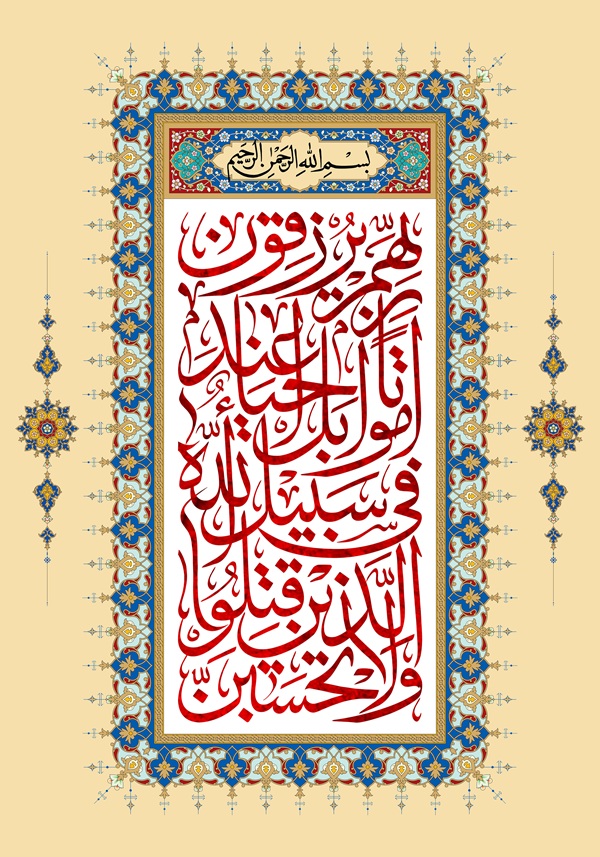 بِسْمِ اللهِ الرَّحْمٰنِ الرَّحیمِ
وَلا تَحْسَبَنَّ
الَّذینَ قُتِلُوا
فی سَبیلِ اللهِ
اَمْواتاً بَلْ اَحْیاءٌ عِنْدَ
رَبِّهِمْ یُرْزَقُونَ